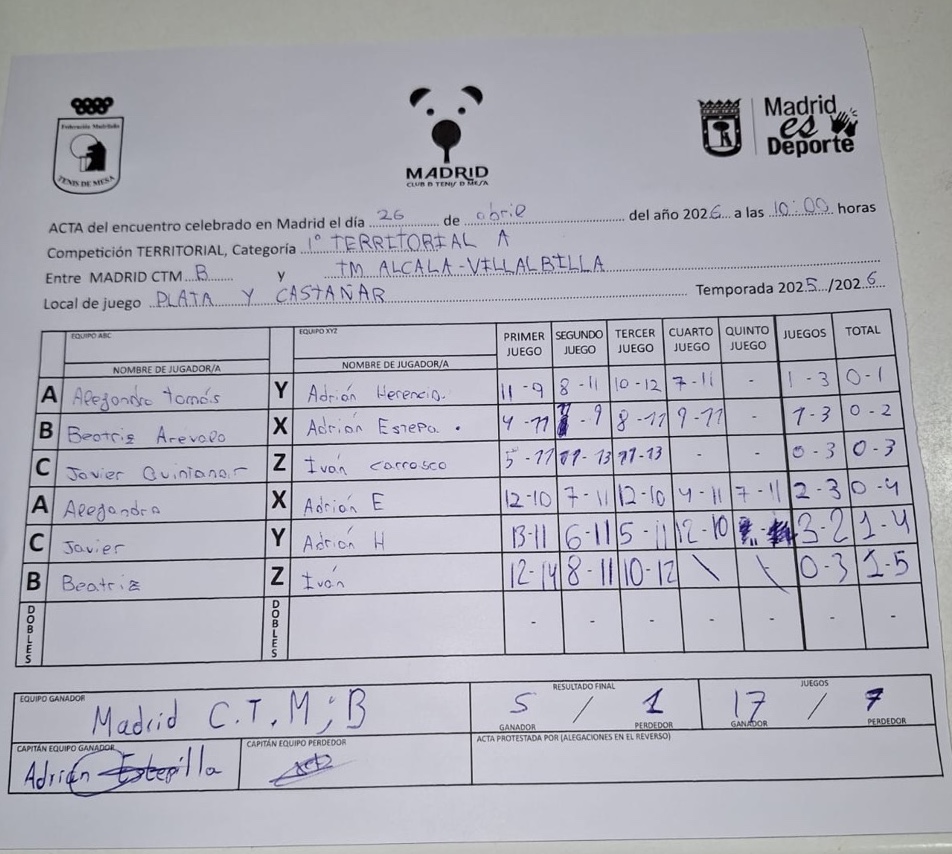 Federación Madrileña
TENIS DE MESA
MADRID
CLUB D TENIS D MESA
Madrid
es
Deporte
ACTA del encuentro celebrado en Madrid el día 26 de abril del año 2026 a las 10:00 horas
Competición TERRITORIAL, Categoría 1º TERRITORIAL A
Entre MADRID CTM B y TM ALCALA-VILLALBILLA
Local de juego PLATA Y CASTAÑAR Temporada 2025/2026
EQUIPO ABC EQUIPO XYZ PRIMER JUEGO SEGUNDO JUEGO TERCER JUEGO CUARTO JUEGO QUINTO JUEGO JUEGOS TOTAL
NOMBRE DE JUGADOR/A NOMBRE DE JUGADOR/A
A Alejandro Tomás Y Adrián Herencia. 11-9 8-11 10-12 7-11 - 1-3 0-1
B Beatriz Arevalo X Adrián Estepa. 4-11 -9 8-11 9-11 1-3 0-2
C Javier Quintanar Z Iván Carrasco 5-11 11-13 11-13 - - 0-3 0-3
A Alejandro X Adrián E 12-10 7-11 12-10 4-11 7-11 2-3 0-4
C Javier Y Adrián H 13-11 6-11 5-11 12-10 3-2 1-4
B Beatriz Z Iván 12-14 8-11 10-12 \ \ 0-3 1-5
DOBLES DOBLES - - - - - - -
EQUIPO GANADOR RESULTADO FINAL JUEGOS
Madrid C.T.M; B 5 / 1 17 / 7
GANADOR PERDEDOR GANADOR PERDEDOR
CAPITÁN EQUIPO GANADOR CAPITÁN EQUIPO PERDEDOR ACTA PROTESTADA POR (ALEGACIONES EN EL REVERSO)
Adrián Estepilla